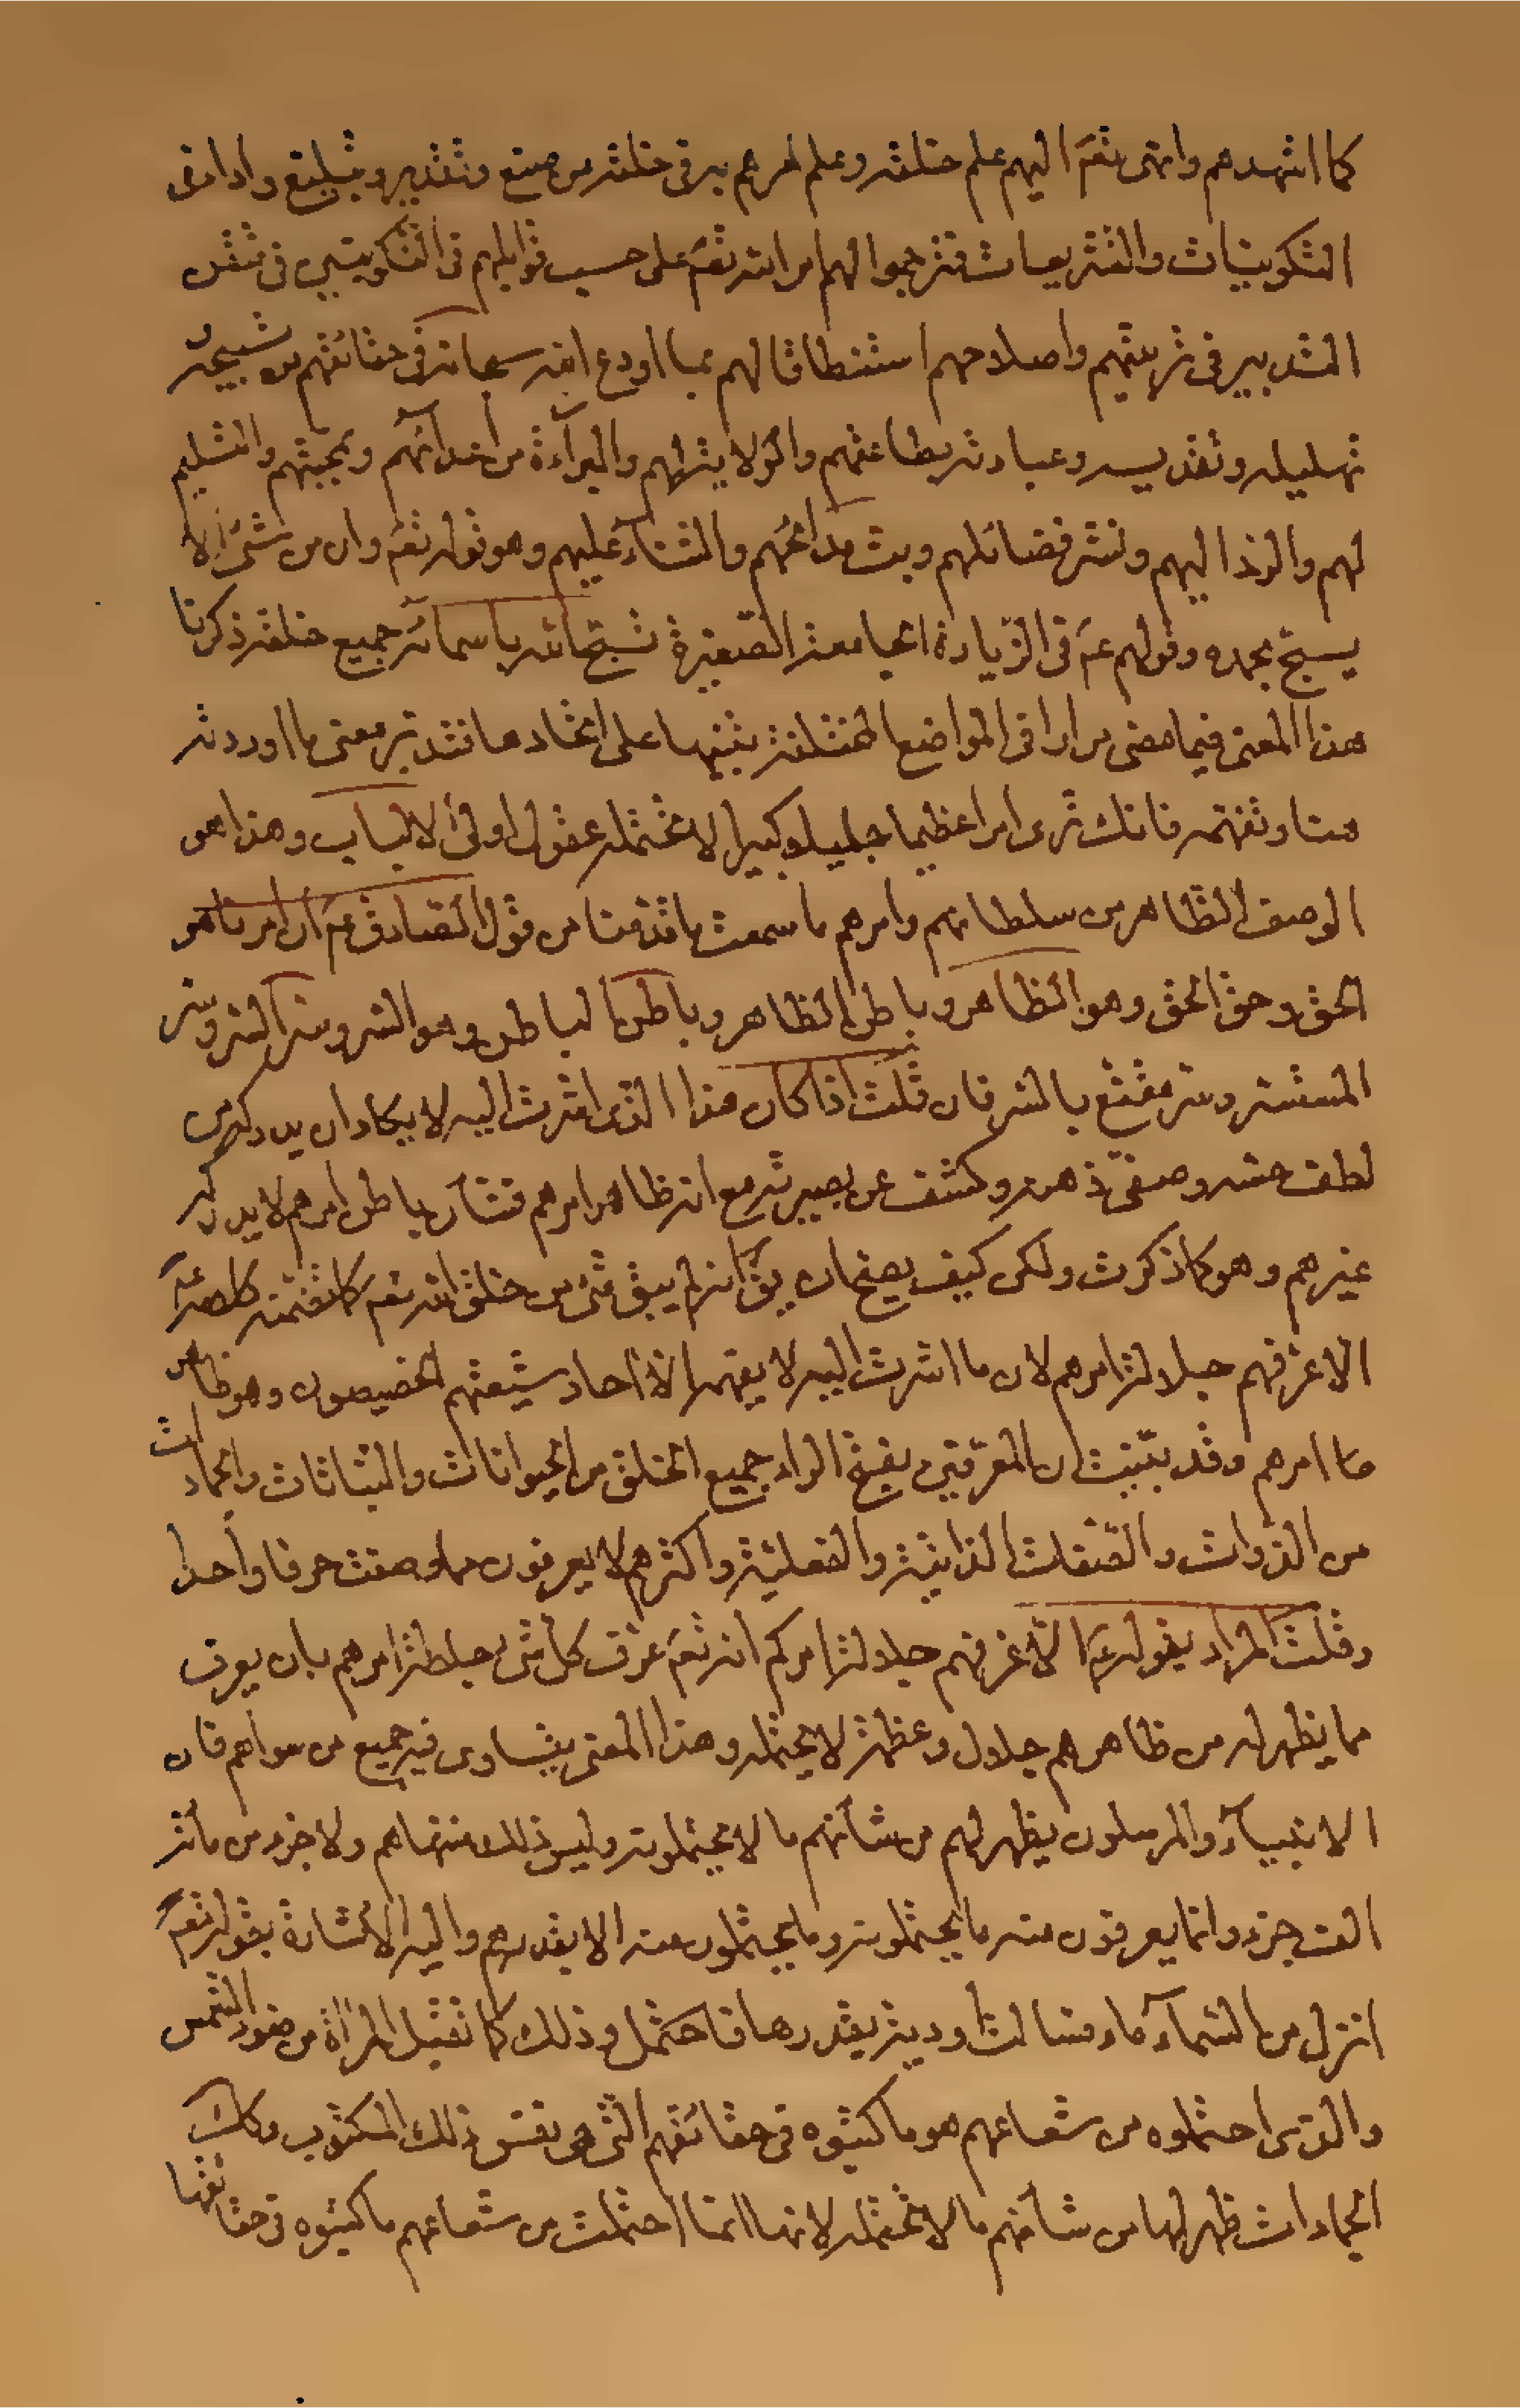 كما اشهدهم وانهى تعم اليهم علم خلقه وعلم امرهم به فى خلقه من صنع وتقدير وتبليغ واداء فى
التكوينيات والتشريعيات فترجموا لهم امر الله تعم على حسب قوابلهم فى التكوينين فى
التدبير فى تربيتهم واصلاحهم استنطاقا لهم بما اودع الله سبحانه فى حقائقهم من تسبيحه
تهليله وتقديسه وعبادته بطاعتهم والولاية لهم والبرآءة من اعدائهم ومحبتهم والتسليم
لهم والرد اليهم ونشر فضائلهم وبث مدائحهم والثنآء عليهم وهو قوله تعم وان من شئ الا
يسبح بحمده وقولهم عم فى الزيارة الجامعة الصغيرة تسبح الله باسمائه جميع خلقه ذكرنا
هذا المعنى فيما مضى مرارا فى المواضع المختلفة تنبيها على اتحادها فتدبر معنى ما اوردته
هنا وتفهمه فانك ترى امرا عظيما جليلا كبيرا لا تحتمله عقول اولى الالباب وهذا هو
الوصف الظاهر من سلطانهم وامرهم ما سمعت ما قدمنا من قول الصادق عم ان امرنا هو
الحق وحق الحق وهو الظاهر وباطن الظاهر وباطن الباطن وهو السر وسر السر وسر
المستسر وسر مقنع بالسر فان قلت اذا كان هذا الذى اشرت اليه لا يكاد ان يدركه من
لطف حسه وصفى ذهنه وكشف عن بصيرته مع انه ظاهر امرهم فشان باطن امرهم لا يدركه
غيرهم وهو كما ذكرت ولكن كيف يصح ان يق انه لم يبق شئ من خلق الله تعم كما تضمنه كلامه عم
الا عرفهم جلالة امرهم لان ما اشرت اليه لا يفهمه الا احاد شيعتهم الخصيصون وهو ظاهر
ما امرهم وقد بينت ان المعرفين بفتح الراء جميع الخلق من الحيوانات والنباتات والجمادات
من الذوات والصفات الذاتية والفعلية واكثرهم لا يعرفون مما وصفت حرفا واحدا
وقلت المراد بقوله عم الا عرفهم جلالة امركم انه تعم عرف كل شئ جلالة امرهم بان يعرف
مما يظهر له من ظاهرهم جلال وعظمة لا يحتمله وهذا المعنى يتساوى فيه جميع من سواهم فان
الانبيآء والمرسلون يظهر لهم من شأنهم ما لا يحتملونه وليس ذلك منتهاهم ولا جزء من مأة
الف جزء وانما يعرفون منه ما يحتملونه وما يحتملون منه الا بقدرهم واليه الاشارة بقوله تعم
انزل من السمآء ماء فسالت اودية بقدرها فاحتمل وذلك كما تقبل المرآة من ضوء الشمس
والذى احتملوه من شعاعهم هو ما كتبوه فى حقائقهم التى هى نفس ذلك المكتوب وكك
الجمادات ظهر لها من شأنهم ما لا تحتمله لانها انما احتملت من شعاعهم ما كتبوه فى حقائقها